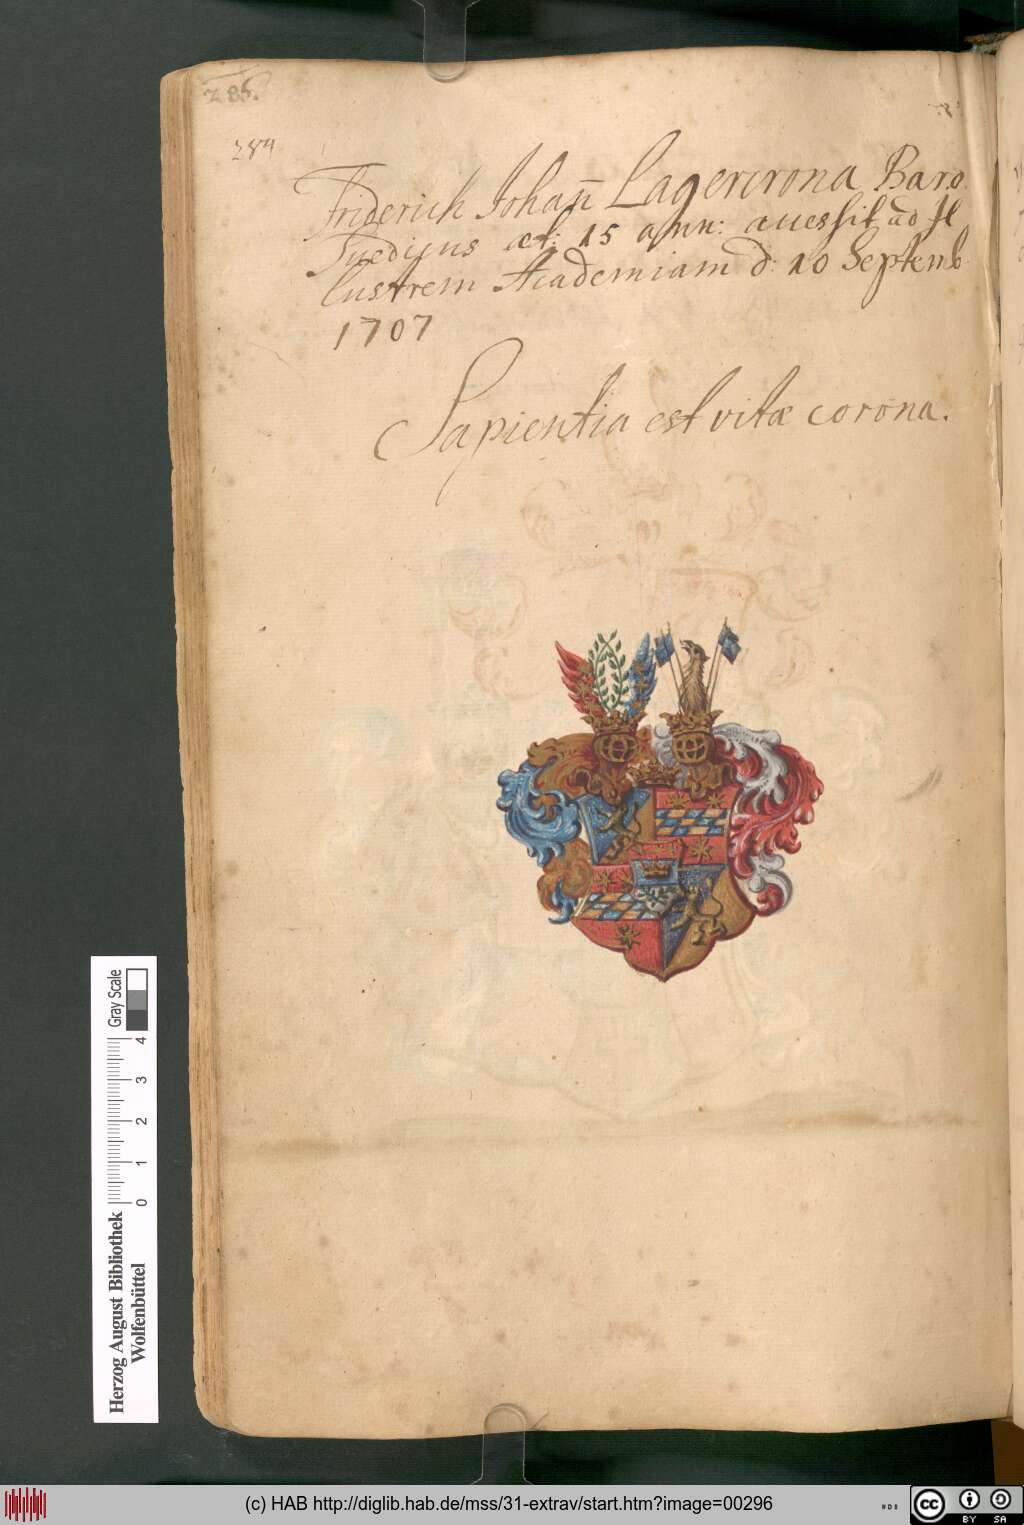 285.
284
Friderich Johañ Lagercrona Baro
Suedicus æt: 15 ann: accessit ad Il
lustrem Academiam d: 10 Septemb
1707
Sapientia est vitæ corona.
Herzog August Bibliothek
Wolfenbüttel
0 1 2 3 4
Gray Scale
(c) HAB http://diglib.hab.de/mss/31-extrav/start.htm?image=00296
cc BY SA